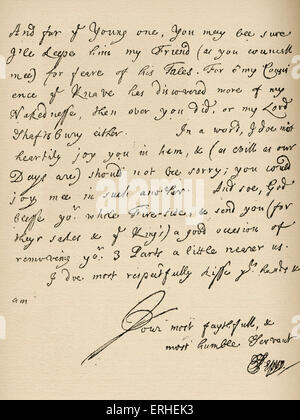 And for yᵉ Young one, You may bee sure
I'le keepe him my Friend (as you councell
mee) for feare of his Tales. For o' my Consci
ence yᵉ Knave has discovered more of my
Nakednesse, then ever you did, or my Lord
Shaftsbury either. In a word, I doe most
heartily joy you in hem, & (as evill as our
Days are) should not be sorry, you could
joy mee in such another. And soe, God
blesse yoʳ whole Fire-side, & send you (for
theyr sakes & yᵉ King's) a good occasion of
removeing yoʳ 3 Parts a little nearer us.
I doe most respectfully kisse yoʳ hands &
am
Your most faythfull, &
most humble Servant
SPepys.
alamy stock photo
ERHEK3
www.alamy.com